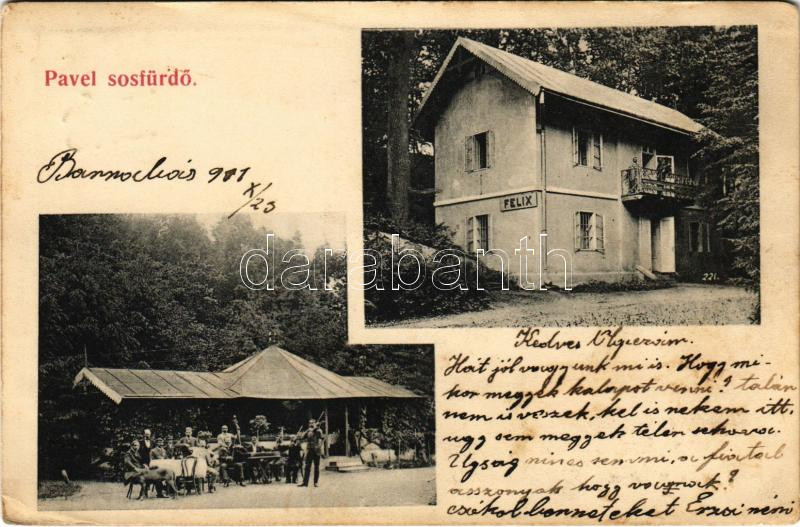 Pavel sosfürdő.
911
X/23
FELIX
221.
darabanth.com
Kedves
Hát jól vagyunk mi is. Hogy mi-
kor megyek kalapot venni? talán
nem is veszek, kel is nekem itt,
ugy sem megyek télen sehova.
Ujság nincs semmi, a fiatal
asszonyok hogy vannak?
csókol benneteket Erzsi néni